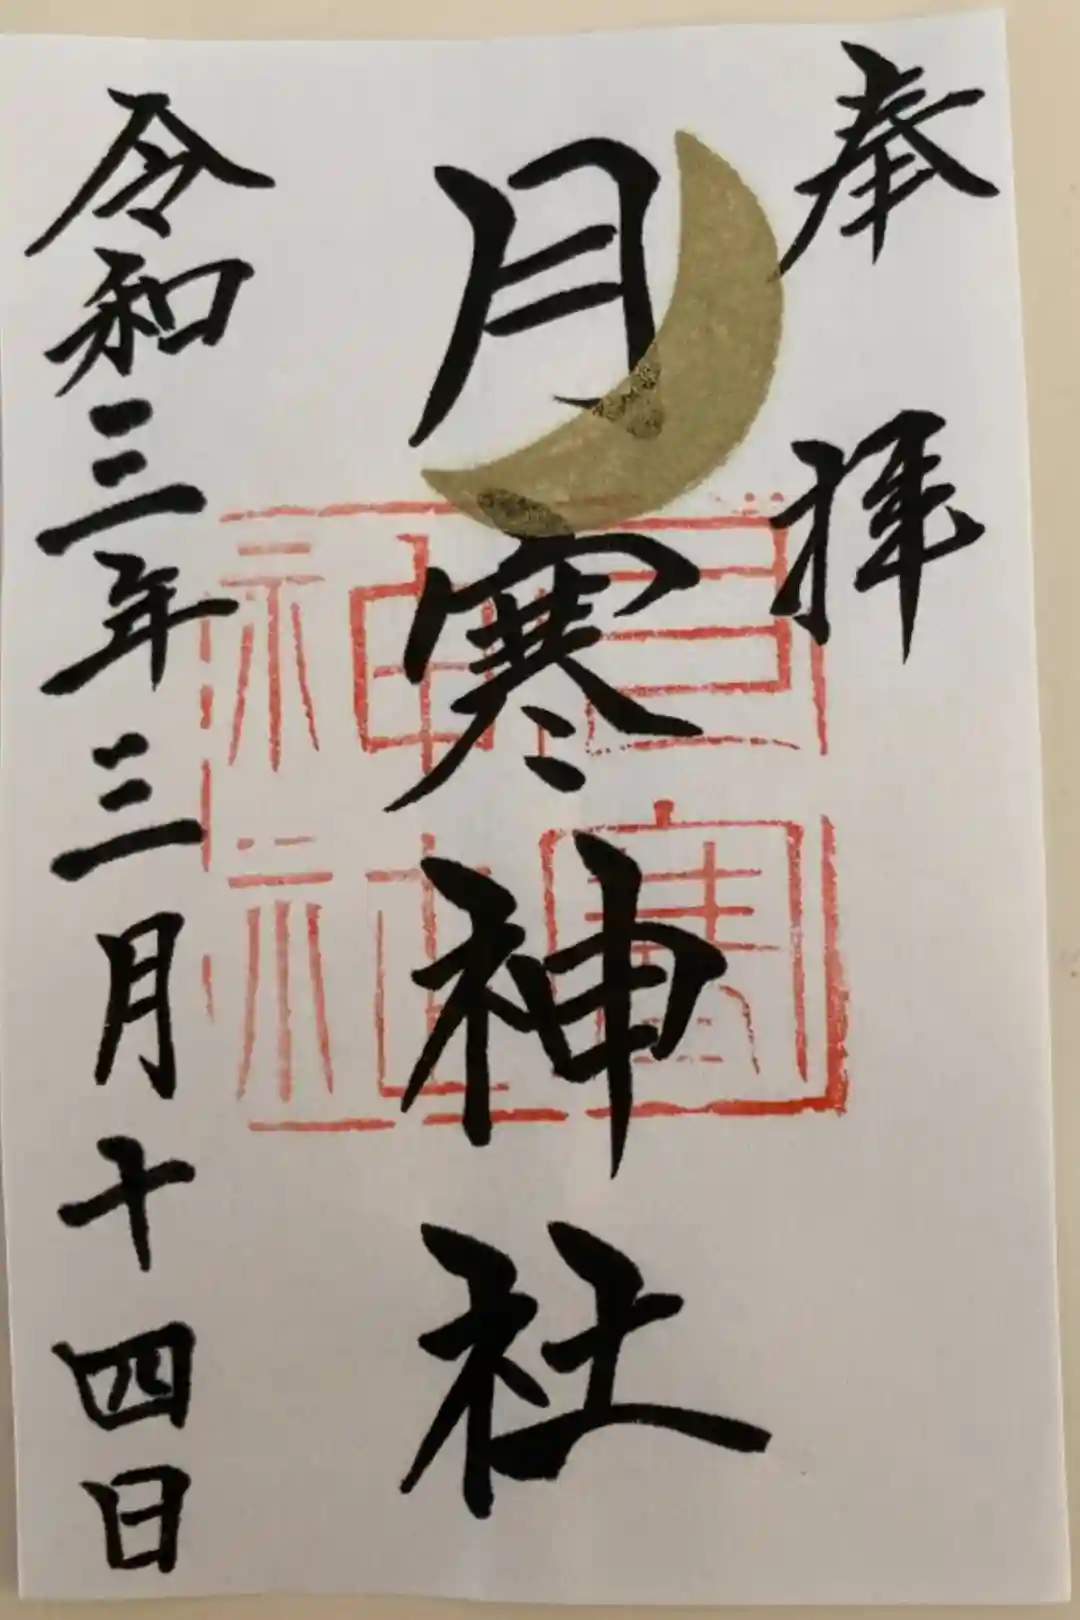 奉拝
月寒神社
月寒神社
令和三年三月十四日